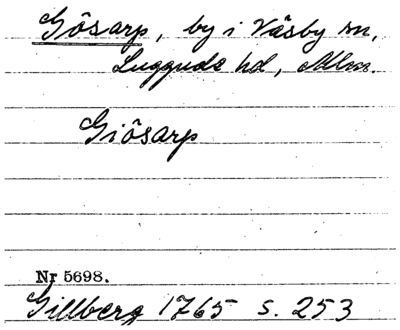 Gösarp, by i Väsby sn,
Luggude hd, Mlm.
Giösarp
Nr 5698.
Gillberg 1765 s. 253